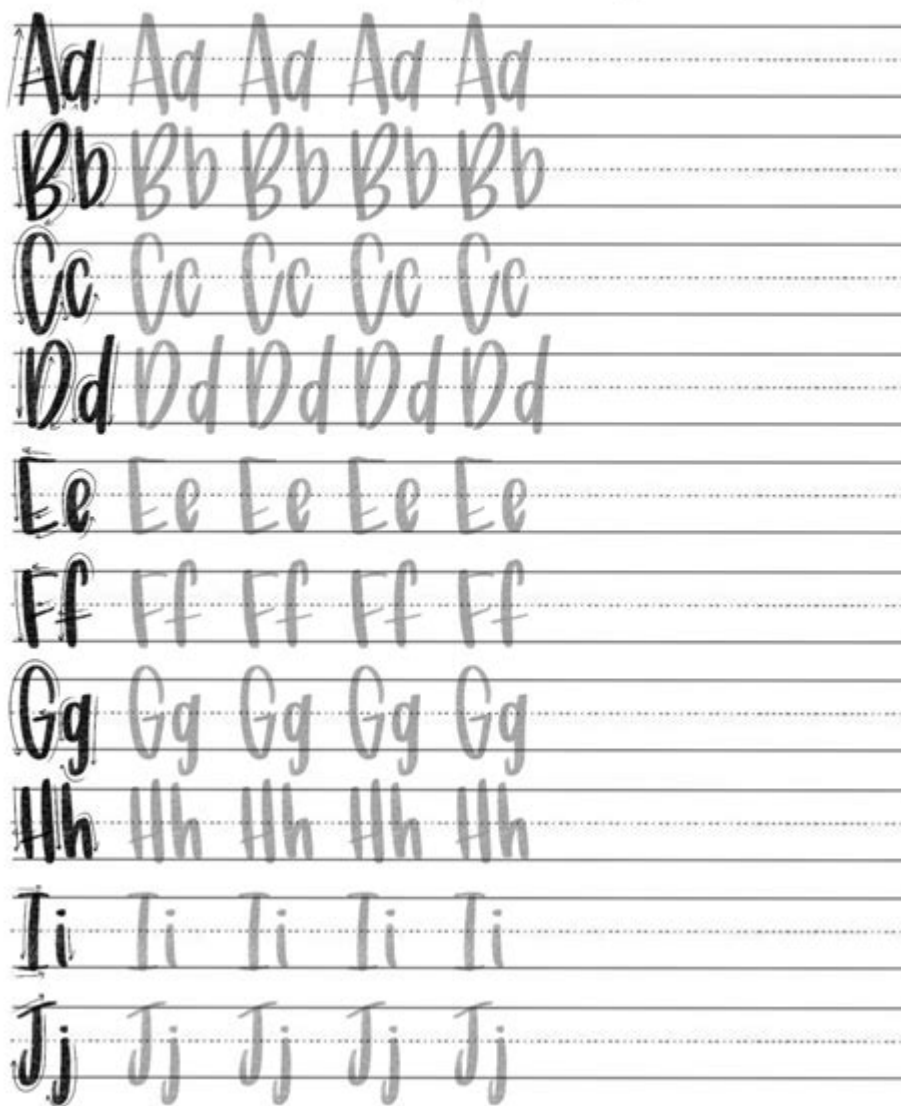 Aa Aa Aa Aa Aa
Bb Bb Bb Bb Bb
Cc Cc Cc Cc Cc
Dd Dd Dd Dd Dd
Ee Ee Ee Ee Ee
Ff Ff Ff Ff Ff
Gg Gg Gg Gg Gg
Hh Hh Hh Hh Hh
Ii Ii Ii Ii Ii
Jj Jj Jj Jj Jj